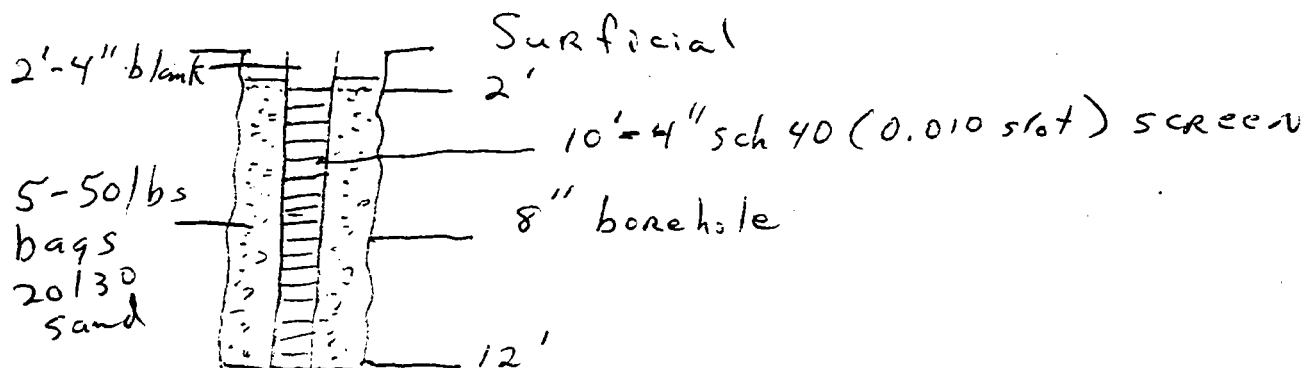 Surficial
2'-4" blank
2'
10'-4" sch 40 (0.010 slot) screen
5-50 lbs
bags
20/30
sand
8" borehole
12'